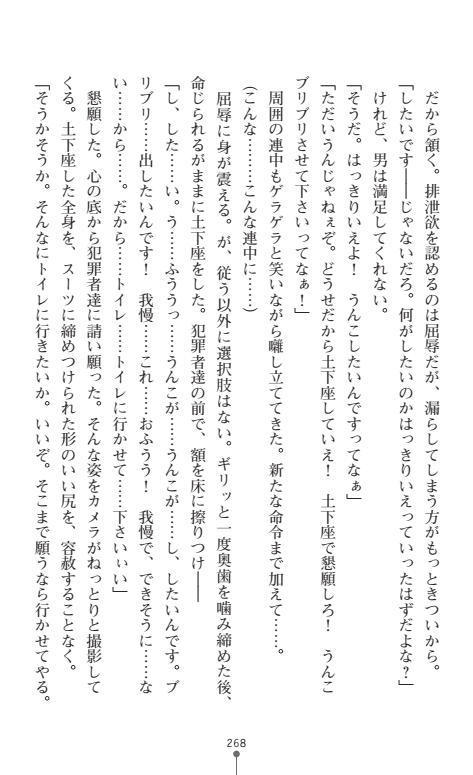 だから頷く。排泄欲を認めるのは屈辱だが、漏らしてしまう方がもっときついから。
「したいです――じゃないだろ。何がしたいのかはっきりいえっていったはずだよな？」
けれど、男は満足してくれない。
「そうだ。はっきりいえよ！　うんこしたいんですってなぁ」
「ただいうんじゃねぇぞ。どうせだから土下座していえ！　土下座で懇願しろ！　うんこ
ブリブリさせて下さいってなぁ！」
周囲の連中もゲラゲラと笑いながら囃し立ててきた。新たな命令まで加えて……。
(こんな………こんな連中に……)
屈辱に身が震える。が、従う以外に選択肢はない。ギリッと一度奥歯を噛み締めた後、
命じられるがままに土下座をした。犯罪者達の前で、額を床に擦りつけ――
「し、した……い。う……ふううっ……うんこが……うんこが……し、したいんです。ブ
リブリ……出したいんです！　我慢……これ……おふうう！　我慢で、できそうに……な
い……から……。だから……トイレ……トイレに行かせて……下さいぃい」
懇願した。心の底から犯罪者達に請い願った。そんな姿をカメラがねっとりと撮影して
くる。土下座した全身を、スーツに締めつけられた形のいい尻を、容赦することなく。
「そうかそうか。そんなにトイレに行きたいか。いいぞ。そこまで願うなら行かせてやる。
268